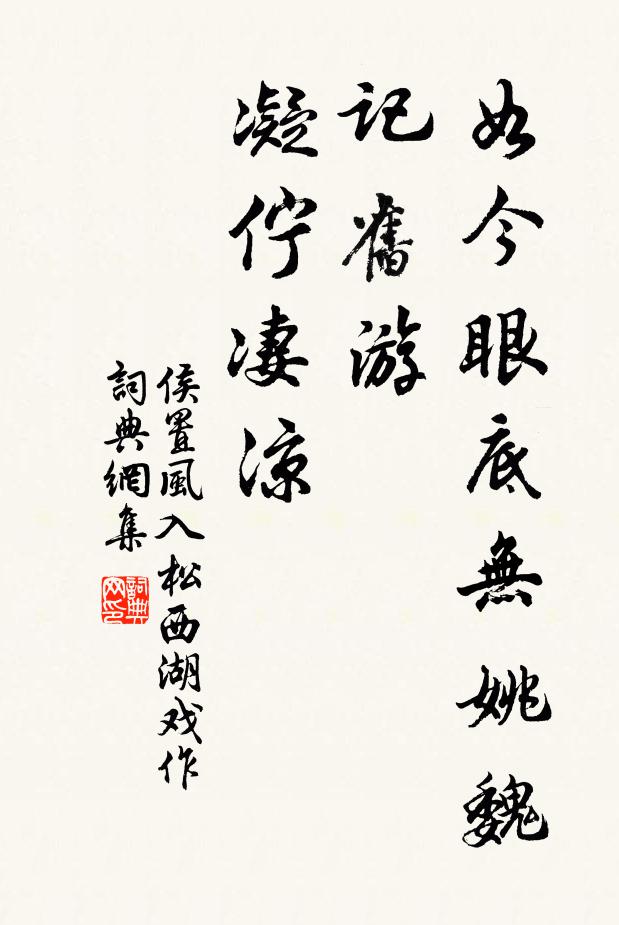 如今眼底無姚魏
記舊游
凝佇凄涼
侯置風入松西湖戏作
詞典網集
詞典
网印